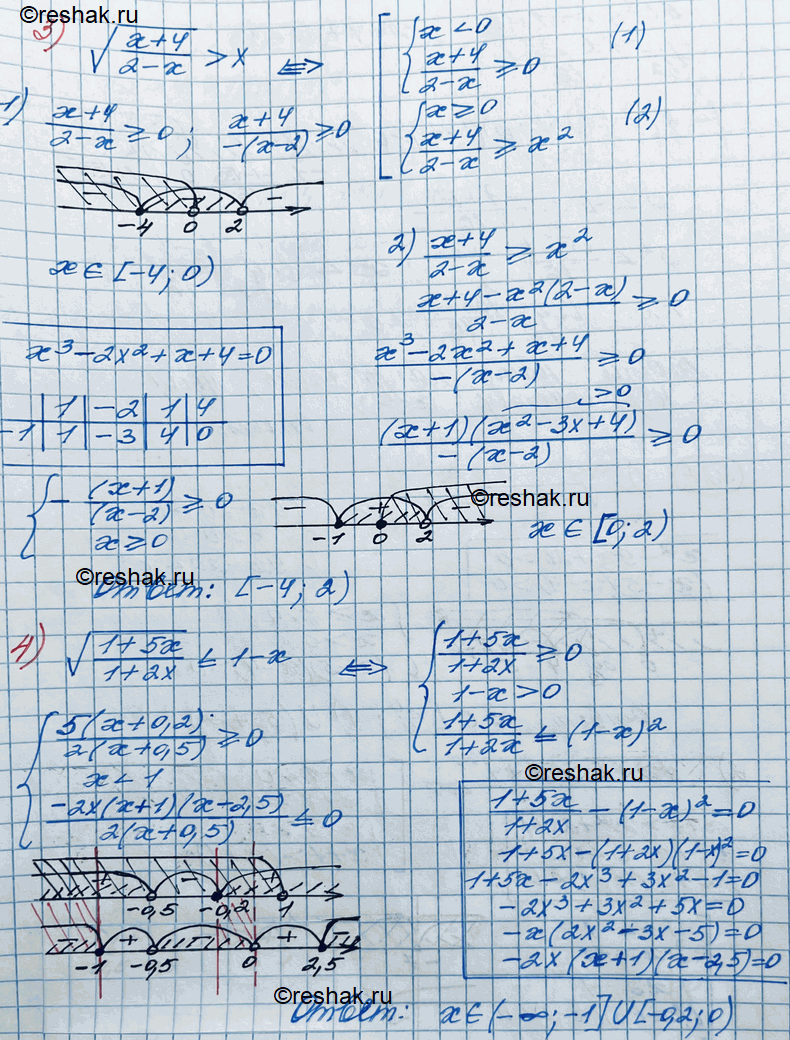 ©reshak.ru
3) √((x+4)/(2-x)) > x ⇔ [ { x < 0
(x+4)/(2-x) ≥ 0 (1)
{ x ≥ 0
(x+4)/(2-x) ≥ x² (2)
1) (x+4)/(2-x) ≥ 0 ; (x+4)/(-(x-2)) ≥ 0
- + -
-4 0 2
x ∈ [-4; 0)
2) (x+4)/(2-x) ≥ x²
(x+4-x²(2-x))/(2-x) ≥ 0
(x³-2x²+x+4)/(-(x-2)) ≥ 0
>0
((x+1)(x²-3x+4))/(-(x-2)) ≥ 0
x³-2x²+x+4=0
| 1 | -2 | 1 | 4
-1 | 1 | -3 | 4 | 0
{ - (x+1)/(x-2) ≥ 0
x ≥ 0
©reshak.ru
- + -
-1 0 2
x ∈ [0; 2)
©reshak.ru
Ответ: [-4; 2)
4) √((1+5x)/(1+2x)) ≤ 1-x ⇔ { (1+5x)/(1+2x) ≥ 0
1-x > 0
(1+5x)/(1+2x) ≤ (1-x)²
{ 5(x+0,2)/2(x+0,5) ≥ 0
x < 1
-2x(x+1)(x-2,5)/2(x+0,5) ≤ 0
©reshak.ru
(1+5x)/(1+2x) - (1-x)² = 0
1+5x-(1+2x)(1-x)²=0
1+5x-2x³+3x²-1=0
-2x³+3x²+5x=0
-x(2x²-3x-5)=0
-2x(x+1)(x-2,5)=0
+ -
-0,5 -0,2 1
- + - + -
-1 -0,5 0 2,5
©reshak.ru
Ответ: x ∈ (-∞; -1] ∪ [-0,2; 0)